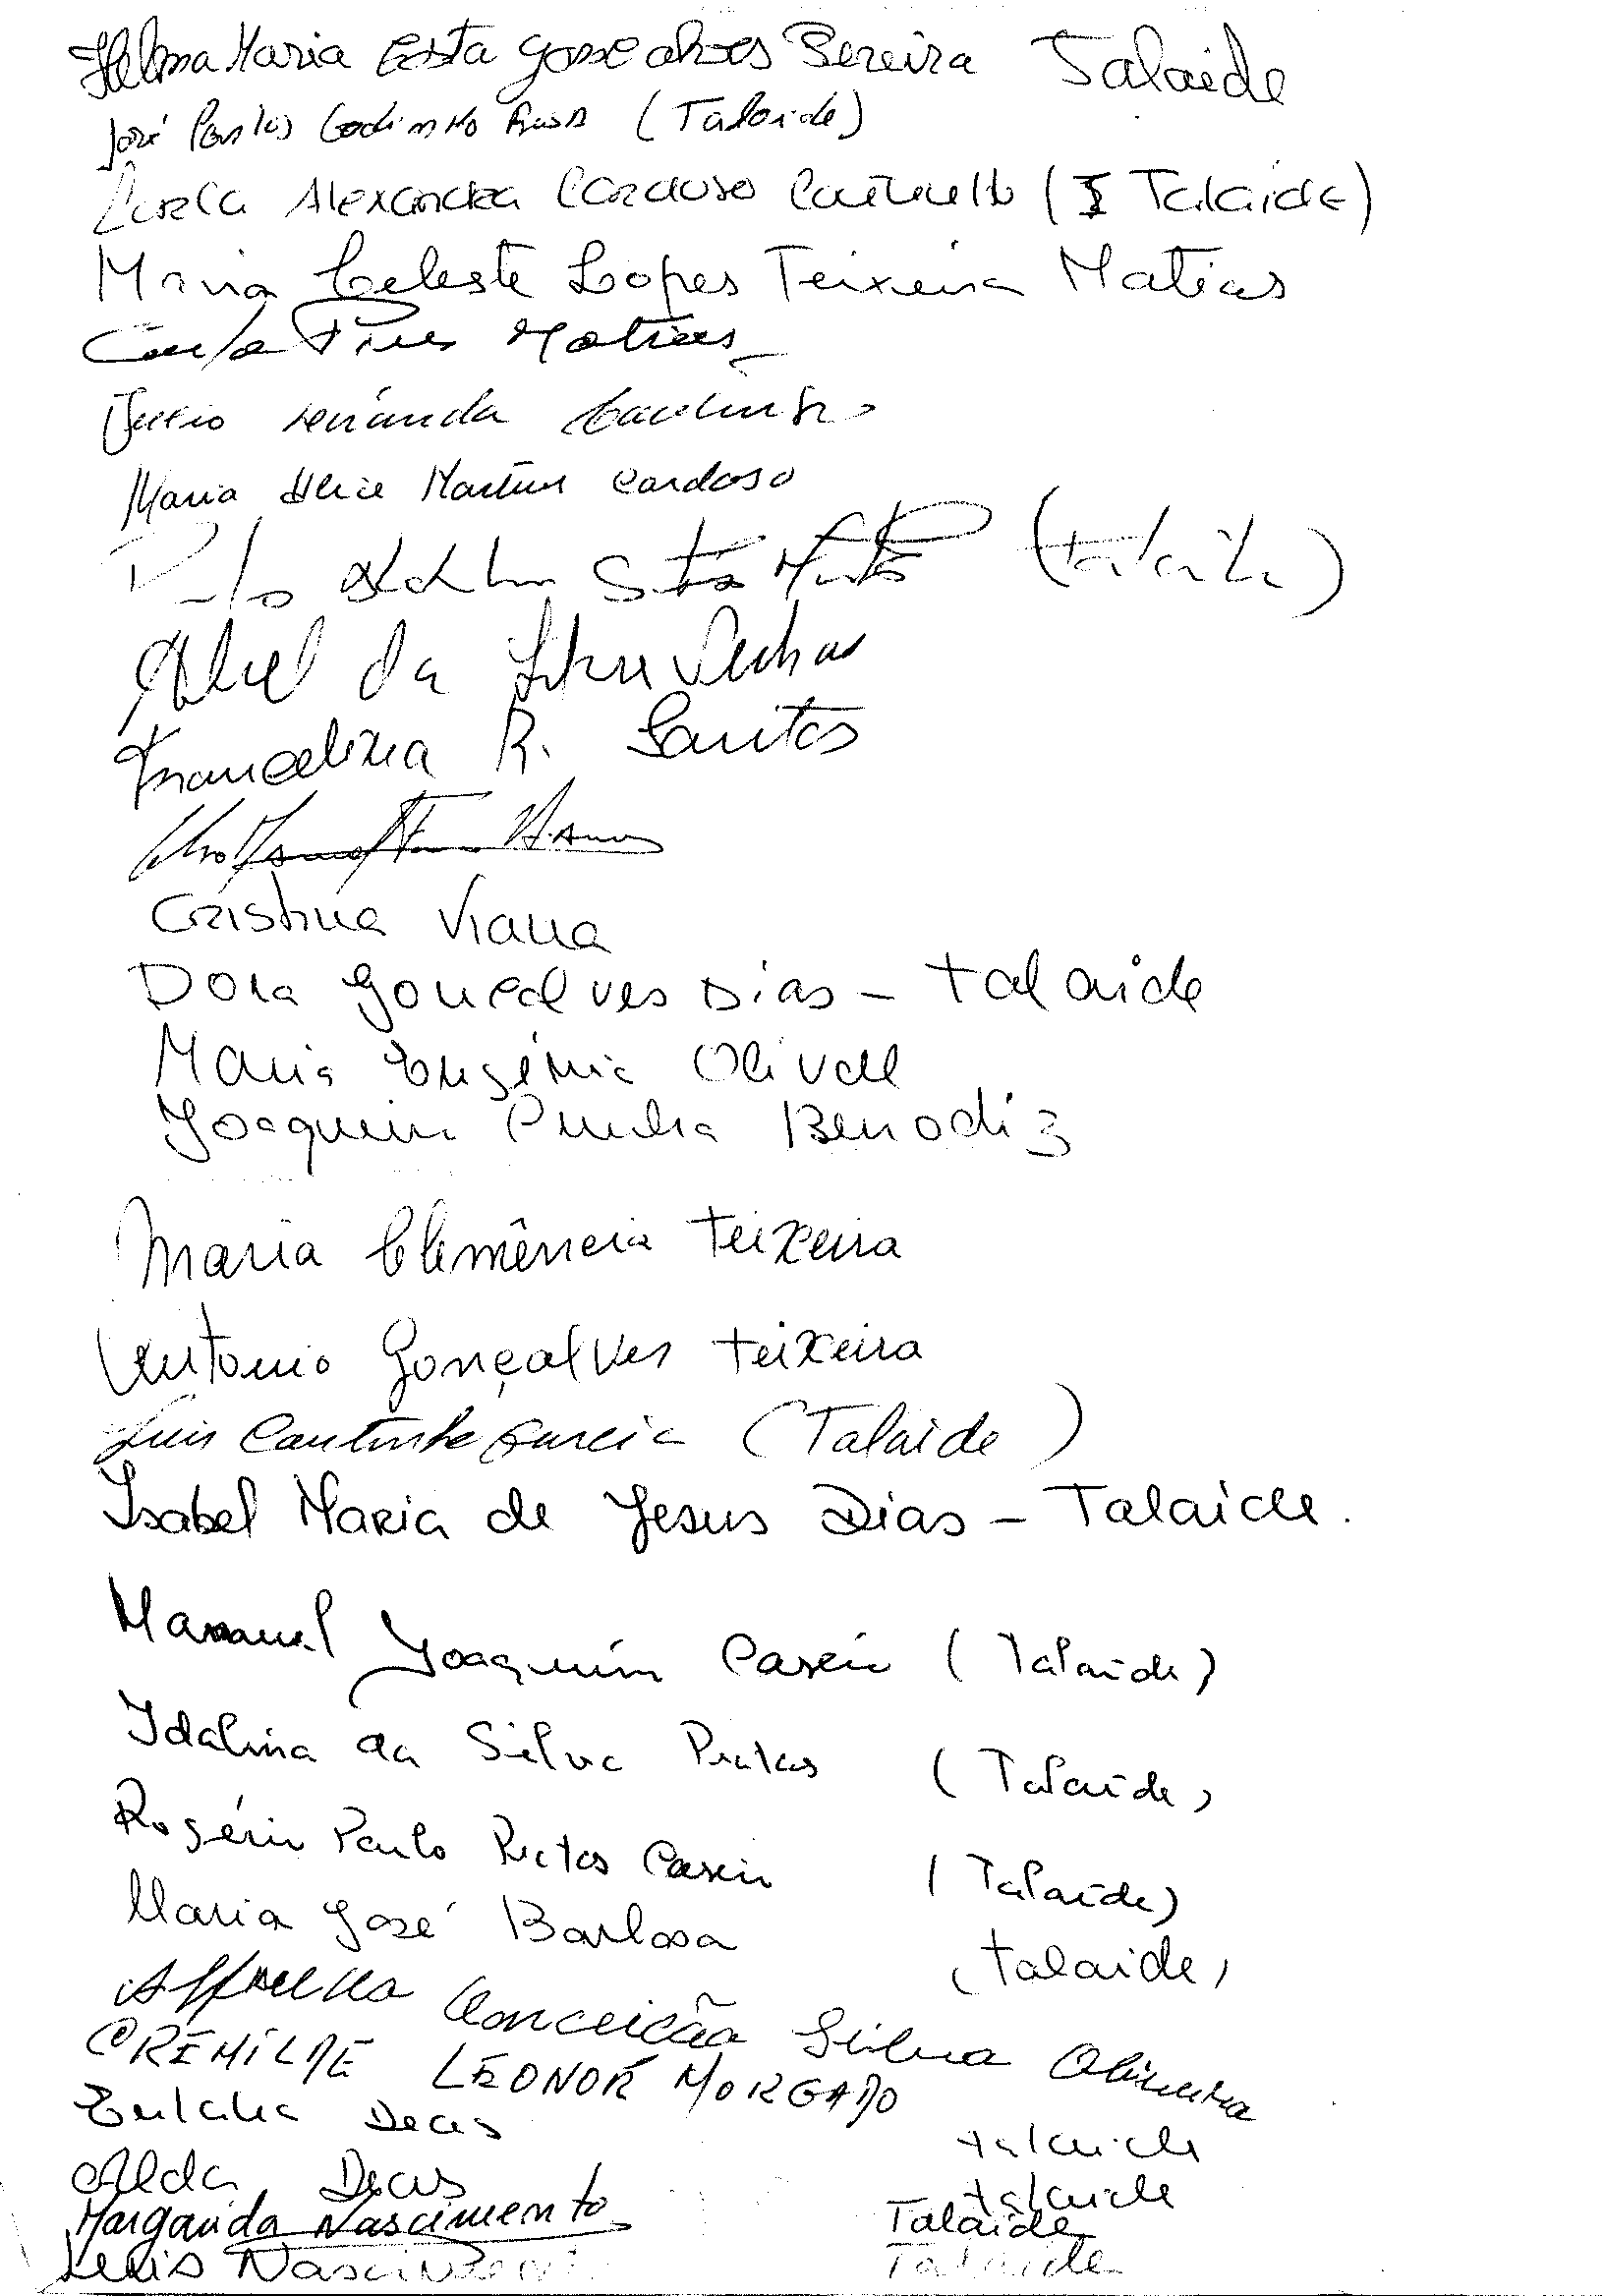 Helena Maria Costa Gonçalves Pereira Talaide
José Carlos Godinho Rosa (Talaide)
Carla Alexandra Cardoso Coutinho (Talaide)
Maria Celeste Lopes Teixeira Matias
Carla Pires Matias
Julio Coutinho
Maria Alice Martins Cardoso
Paulo (talaide)
Abel da Silva
Francelina R. Santos
Cristina Viana
Dora Gonçalves Dias - talaide
Maria Eugénia Olival
Joaquim Cunha Benodiz
Maria Clemência Teixeira
Antonio Gonçalves teixeira
Luis Garcia (Talaide)
Isabel Maria de Jesus Dias - Talaide.
Manuel Joaquim Caseiro (Talaide)
Idalina da Silva Pratas (Talaide)
Rogério Paulo Pratas Caseiro (Talaide)
Maria José Barbosa (talaide)
Conceição Silva Oliveira
CREMILDE LEONOR MORGADO
Eulalia Dias talaide
Alda Dias talaide
Margarida Nascimento Talaide
Luis Nascimento Talaide